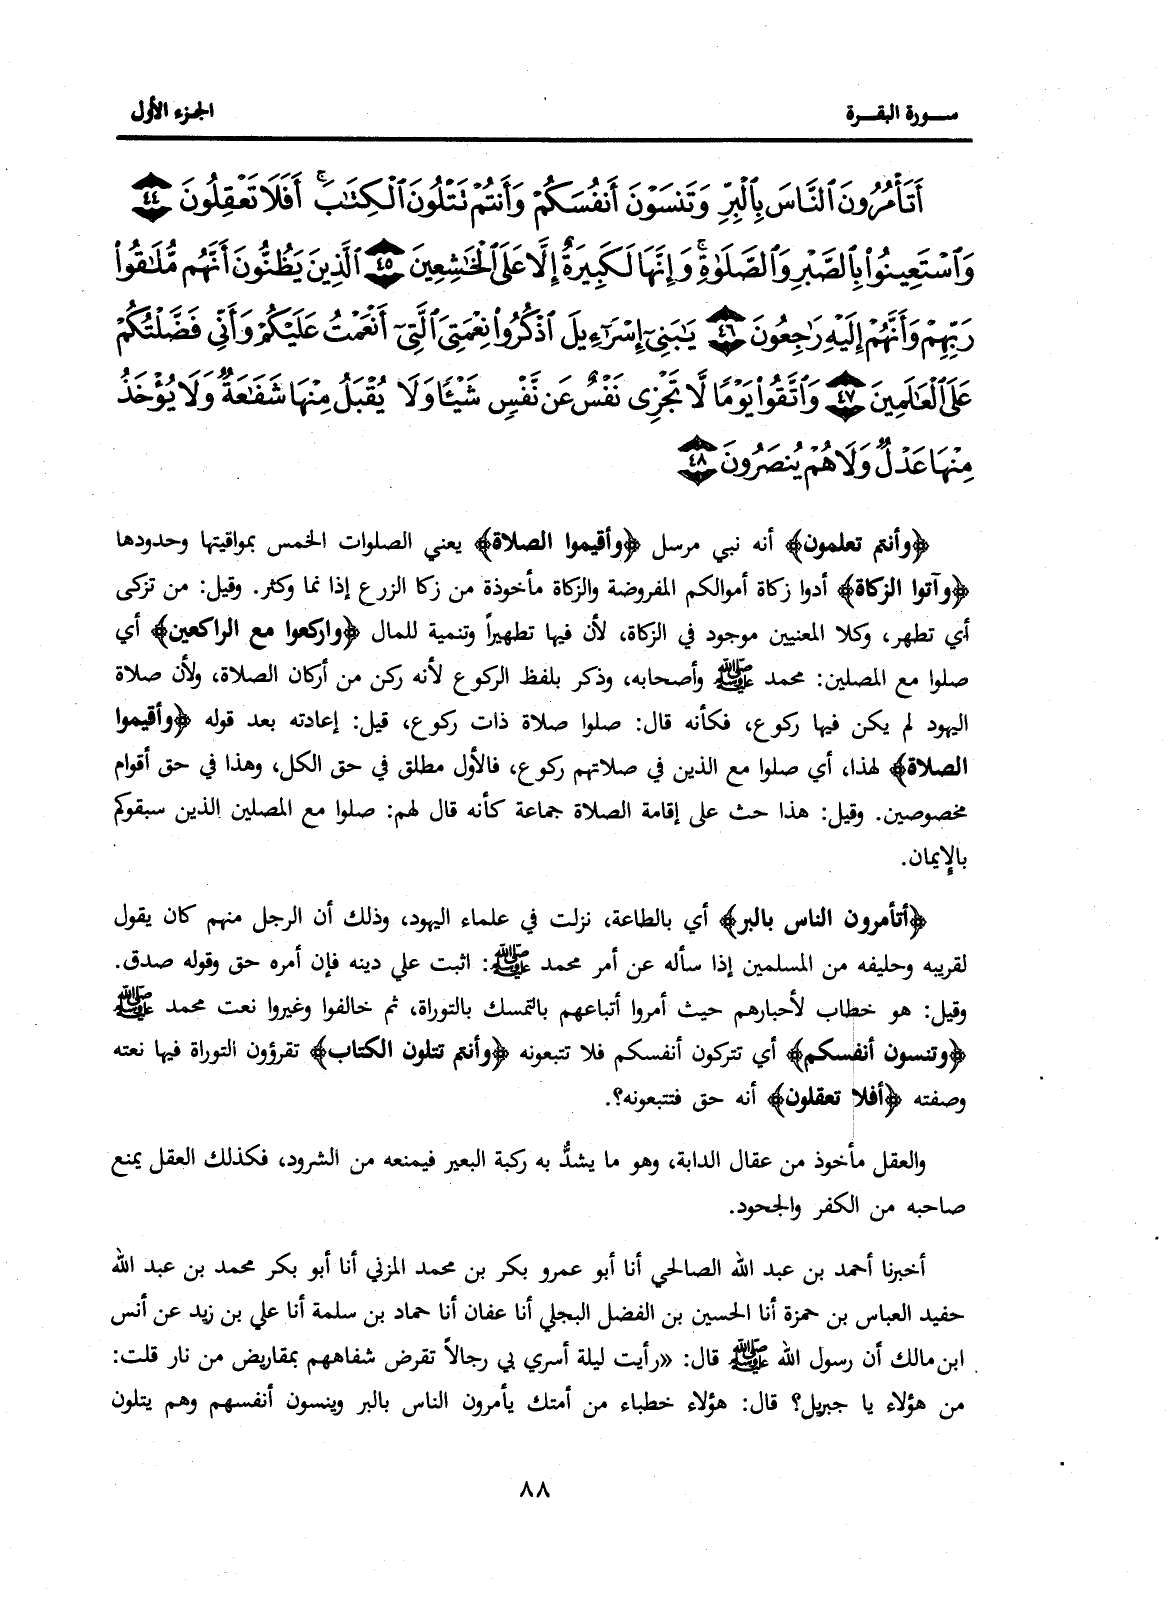 سـورة البقـرة
الجزء الأول
أَتَأْمُرُونَ ٱلنَّاسَ بِٱلْبِرِّ وَتَنسَوْنَ أَنفُسَكُمْ وَأَنتُمْ تَتْلُونَ ٱلْكِتَٰبَ ۚ أَفَلَا تَعْقِلُونَ ٤٤
وَٱسْتَعِينُوا۟ بِٱلصَّبْرِ وَٱلصَّلَوٰةِ ۚ وَإِنَّهَا لَكَبِيرَةٌ إِلَّا عَلَى ٱلْخَٰشِعِينَ ٤٥ ٱلَّذِينَ يَظُنُّونَ أَنَّهُم مُّلَٰقُوا۟
رَبِّهِمْ وَأَنَّهُمْ إِلَيْهِ رَٰجِعُونَ ٤٦ يَٰبَنِىٓ إِسْرَٰٓءِيلَ ٱذْكُرُوا۟ نِعْمَتِىَ ٱلَّتِىٓ أَنْعَمْتُ عَلَيْكُمْ وَأَنِّى فَضَّلْتُكُمْ
عَلَى ٱلْعَٰلَمِينَ ٤٧ وَٱتَّقُوا۟ يَوْمًا لَّا تَجْزِى نَفْسٌ عَن نَّفْسٍ شَيْـًٔا وَلَا يُقْبَلُ مِنْهَا شَفَٰعَةٌ وَلَا يُؤْخَذُ
مِنْهَا عَدْلٌ وَلَا هُمْ يُنصَرُونَ ٤٨
﴿وأنتم تعلمون﴾ أنه نبي مرسل ﴿وأقيموا الصلاة﴾ يعني الصلوات الخمس بمواقيتها وحدودها
﴿وآتوا الزكاة﴾ أدوا زكاة أموالكم المفروضة والزكاة مأخوذة من زكا الزرع إذا نما وكثر. وقيل: من تزكى
أي تطهر، وكلا المعنيين موجود في الزكاة، لأن فيها تطهيراً وتنمية للمال ﴿واركعوا مع الراكعين﴾ أي
صلوا مع المصلين: محمد ﷺ وأصحابه، وذكر بلفظ الركوع لأنه ركن من أركان الصلاة، ولأن صلاة
اليهود لم يكن فيها ركوع، فكأنه قال: صلوا صلاة ذات ركوع، قيل: إعادته بعد قوله ﴿وأقيموا
الصلاة﴾ لهذا، أي صلوا مع الذين في صلاتهم ركوع، فالأول مطلق في حق الكل، وهذا في حق أقوام
مخصوصين. وقيل: هذا حث على إقامة الصلاة جماعة كأنه قال لهم: صلوا مع المصلين الذين سبقوكم
بالإيمان.
﴿أتأمرون الناس بالبر﴾ أي بالطاعة، نزلت في علماء اليهود، وذلك أن الرجل منهم كان يقول
لقريبه وحليفه من المسلمين إذا سأله عن أمر محمد ﷺ: اثبت علي دينه فإن أمره حق وقوله صدق.
وقيل: هو خطاب لأحبارهم حيث أمروا أتباعهم بالتمسك بالتوراة، ثم خالفوا وغيروا نعت محمد ﷺ
﴿وتنسون أنفسكم﴾ أي تتركون أنفسكم فلا تتبعونه ﴿وأنتم تتلون الكتاب﴾ تقرؤون التوراة فيها نعته
وصفته ﴿أفلا تعقلون﴾ أنه حق فتتبعونه؟.
والعقل مأخوذ من عقال الدابة، وهو ما يشدُّ به ركبة البعير فيمنعه من الشرود، فكذلك العقل يمنع
صاحبه من الكفر والجحود.
أخبرنا أحمد بن عبد الله الصالحي أنا أبو عمرو بكر بن محمد المزني أنا أبو بكر محمد بن عبد الله
حفيد العباس بن حمزة أنا الحسين بن الفضل البجلي أنا عفان أنا حماد بن سلمة أنا علي بن زيد عن أنس
ابن مالك أن رسول الله ﷺ قال: «رأيت ليلة أسري بي رجالاً تقرض شفاههم بمقاريض من نار قلت:
من هؤلاء يا جبريل؟ قال: هؤلاء خطباء من أمتك يأمرون الناس بالبر وينسون أنفسهم وهم يتلون
٨٨